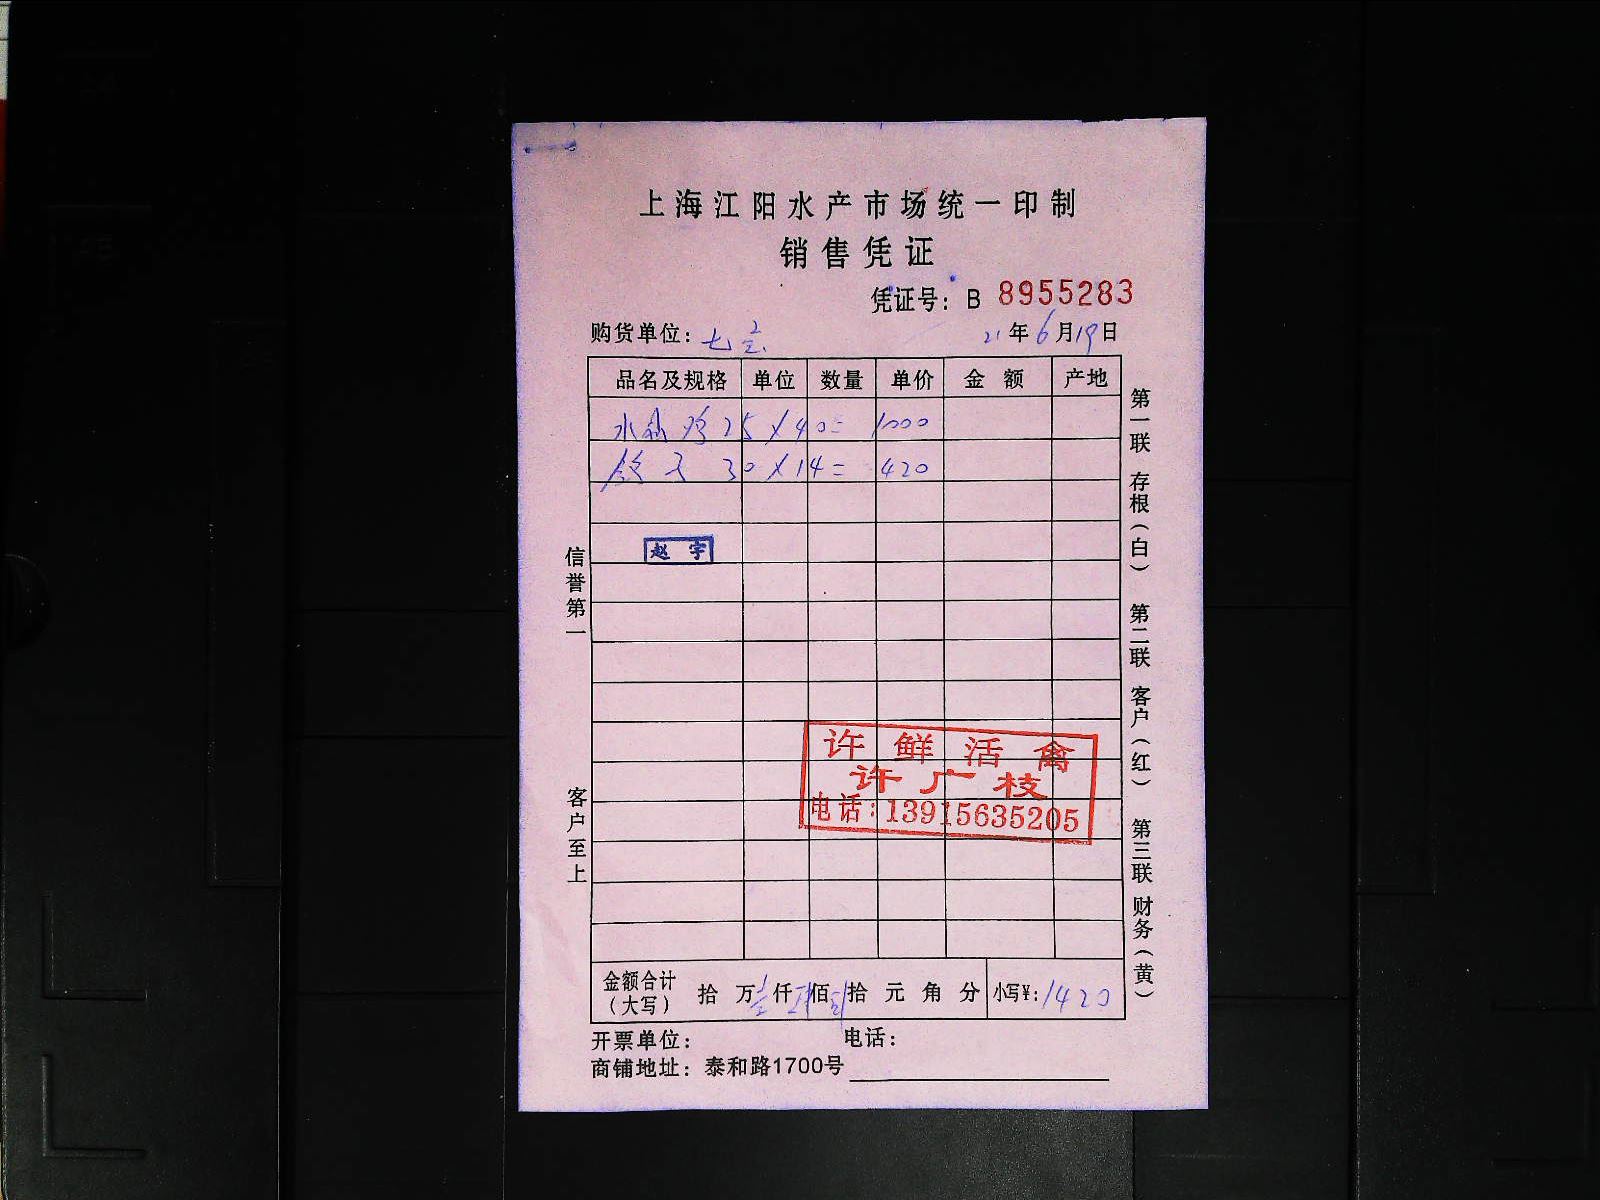 上海江阳水产市场统一印制
销售凭证
凭证号：B 8955283
购货单位：七 21年6月19日
品名及规格 单位 数量 单价 金额 产地
水 25×40=1000
30×14=420
赵宇
信誉第一
客户至上
第一联 存根（白） 第二联 客户（红） 第三联 财务（黄）
许鲜活禽
许广枝
电话：13915635205
金额合计（大写） 拾 万壹仟肆佰贰拾 元 角 分 小写¥：1420
开票单位： 电话：
商铺地址：泰和路1700号